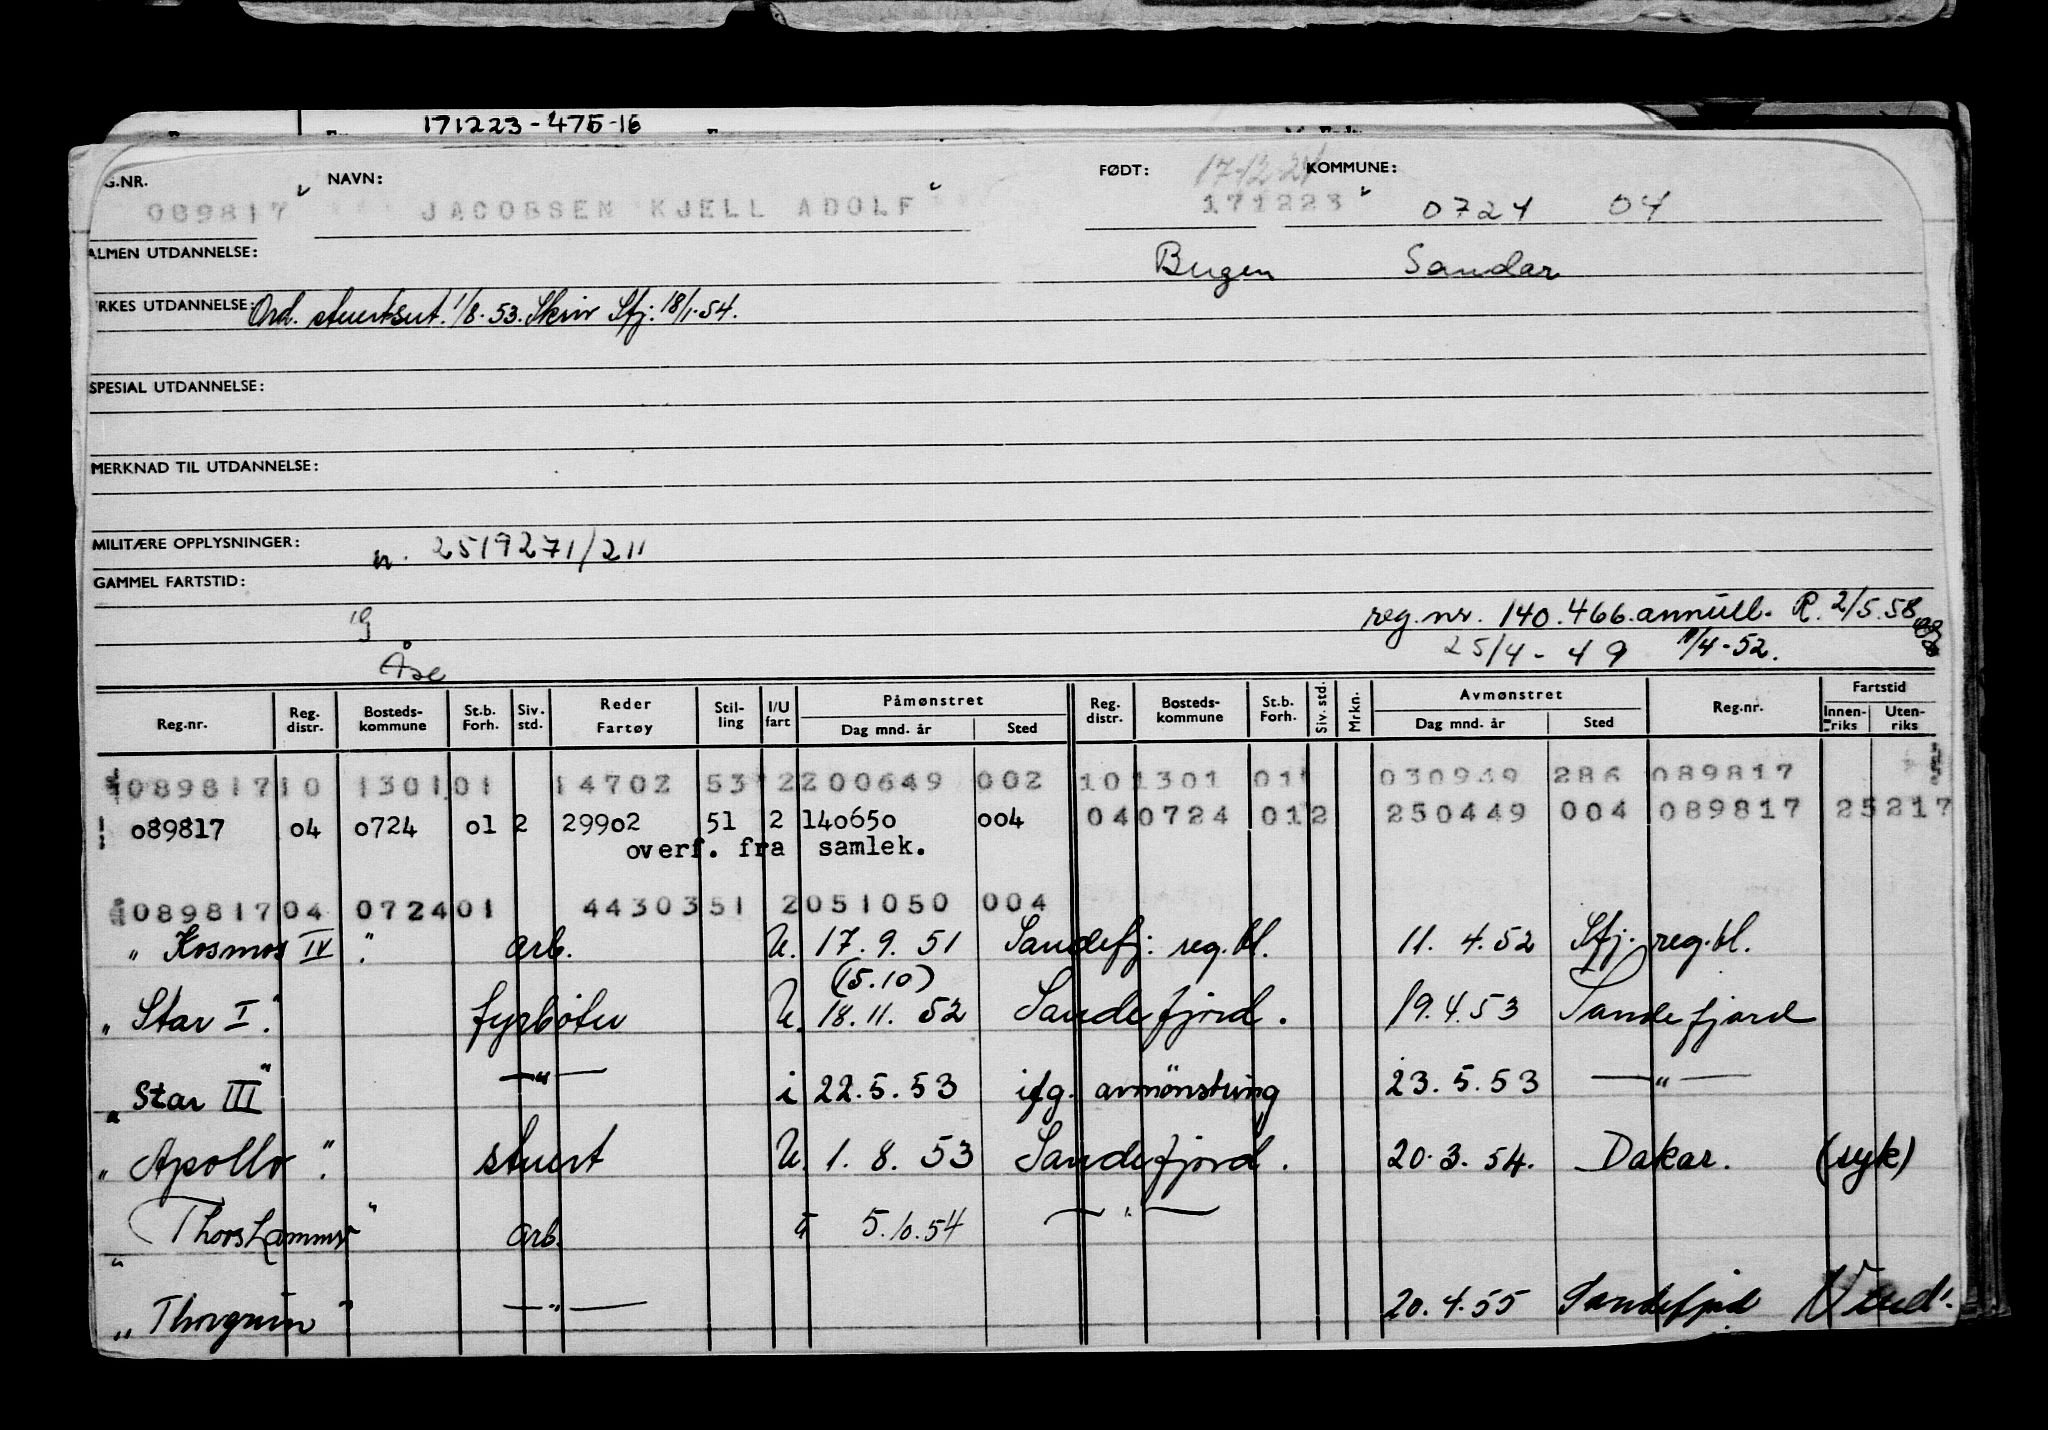 171223-475-16
G.NR. NAVN: FØDT: 17-12-24 KOMMUNE:
089817 JACOBSEN KJELL ADOLF 171223 0724 04
ALMEN UTDANNELSE: Bugen Sandar
RKES UTDANNELSE: Ord. stuertsut. 1/8-53. Skriv Sfj. 18/1-54.
SPESIAL UTDANNELSE:
MERKNAD TIL UTDANNELSE:
MILITÆRE OPPLYSNINGER: n. 2519271/211
GAMMEL FARTSTID:
19 reg.nr. 140.466. annull. R. 2/5.58
25/4-49 11/4-52.
Åse
Reg.nr. Reg. distr. Bosteds-kommune St.b. Forh. Siv. std. Reder Fartøy Stil-ling I/U fart Påmønstret Dag mnd. år Sted Reg. distr. Bosteds-kommune St.b. Forh. Siv. std. Mrkn. Avmønstret Dag mnd. år Sted Reg.nr. Fartstid Innen-riks Uten-riks
089817 10 1301 01 14702 53 2 200649 002 10 1301 01 030949 286 089817
089817 04 0724 01 2 29902 51 2 140650 004 04 0724 01 2 250449 004 089817 25217
overf. fra samlek.
089817 04 0724 01 44303 51 2 051050 004
" Kosmos IV " arb. U. 17.9.51 Sandefj. reg.bl. 11.4.52 Sfj. reg.bl.
(15.10)
" Star I " fyrbøter U. 18.11.52 Sandefjord. 19.4.53 Sandefjord
" Star III " —"— i 22.5.53 ifg. avmönstring 23.5.53 —"—
" Apollo " stuert U. 1.8.53 Sandefjord. 20.3.54. Dakar. (syk)
" Thorshammer " arb. u 5.10.54 —"—
" Thorgrim " —"— 20.4.55 Sandefjord